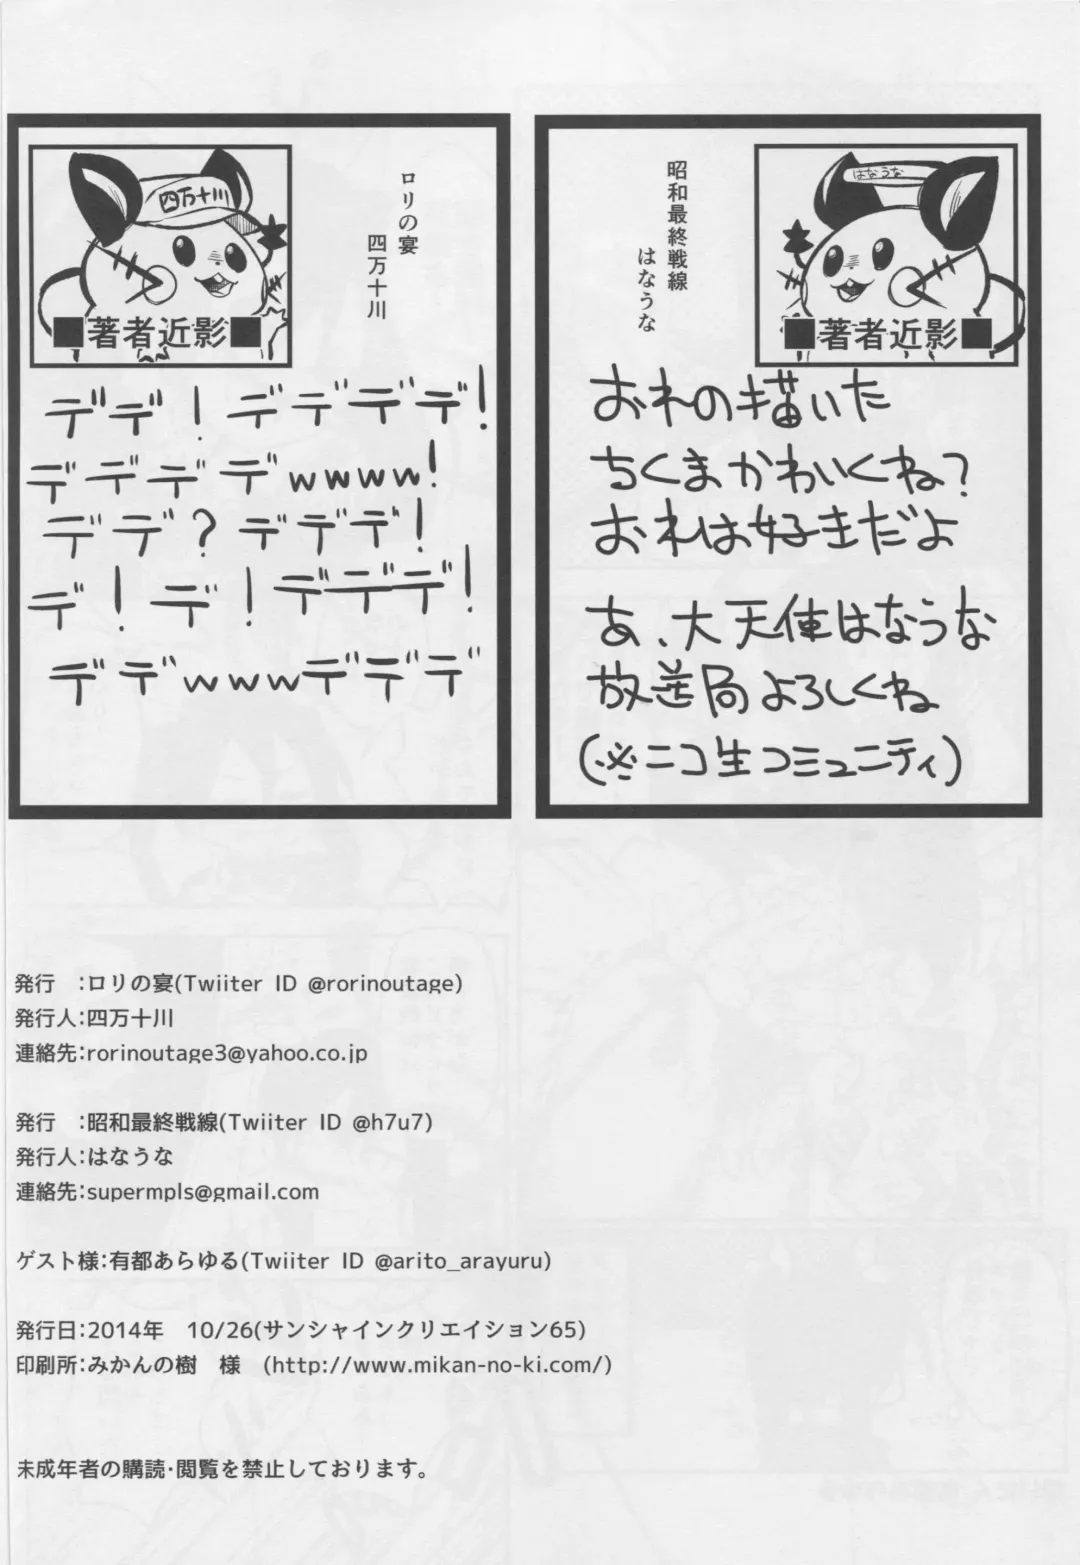 昭和最終戦線
はなうな
はなうな
■著者近影■
おれの描いた
ちくまかわいくね?
おれは好きだよ
あ、大天使はなうな
放送局よろしくね
(※ニコ生コミュニティ)
ロリの宴
四万十川
四万十川
■著者近影■
デデ! デデデデ!
デデデデwwww!
デデ? デデデ!
デ! デ! デデデ!
デデwwwデデデ
発行　:ロリの宴(Twiiter ID @rorinoutage)
発行人:四万十川
連絡先:rorinoutage3@yahoo.co.jp
発行　:昭和最終戦線(Twiiter ID @h7u7)
発行人:はなうな
連絡先:supermpls@gmail.com
ゲスト様:有都あらゆる(Twiiter ID @arito_arayuru)
発行日:2014年　10/26(サンシャインクリエイション65)
印刷所:みかんの樹　様　(http://www.mikan-no-ki.com/)
未成年者の購読・閲覧を禁止しております。